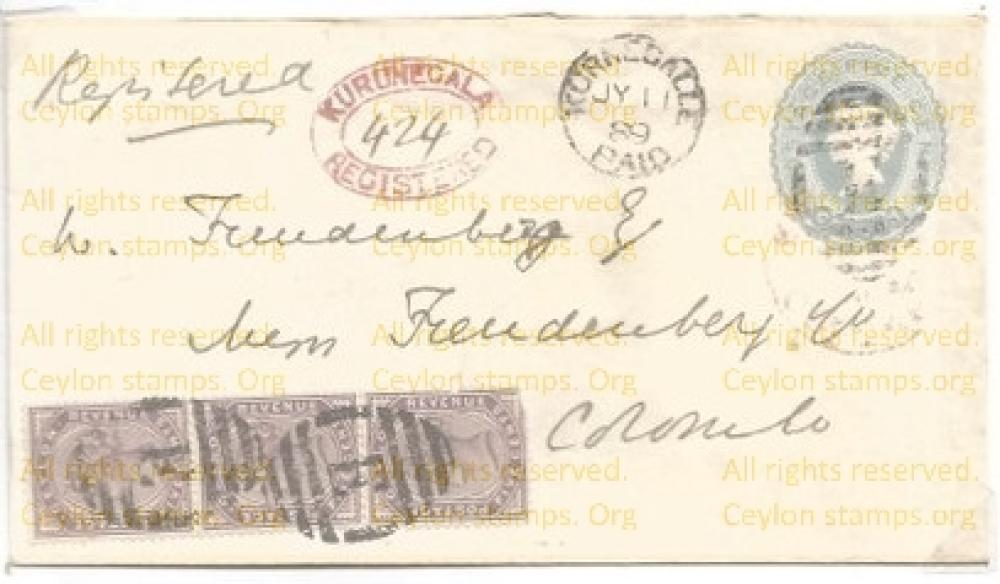 Registered
KURUNEGALA
424
REGISTERED
KORNEGALLE
JY 11
89
PAID
W. Freudenberg Esq
Messrs Freudenberg & Co
Colombo
REVENUE
REVENUE
REVENUE
All rights reserved.
Ceylon stamps. Org
All rights reserved.
Ceylon stamps. Org
All rights reserved.
Ceylon stamps. Org
All rights reserved.
Ceylon stamps. Org
All rights reserved.
Ceylon stamps. Org
All rights reserved.
Ceylon stamps. Org
All rights reserved.
Ceylon stamps. Org
All rights reserved.
Ceylon stamps. Org
All rights reserved.
Ceylon stamps. Org
All rights reserved.
Ceylon stamps. Org
All rights reserved.
Ceylon stamps. Org
All rights reserved.
Ceylon stamps. Org